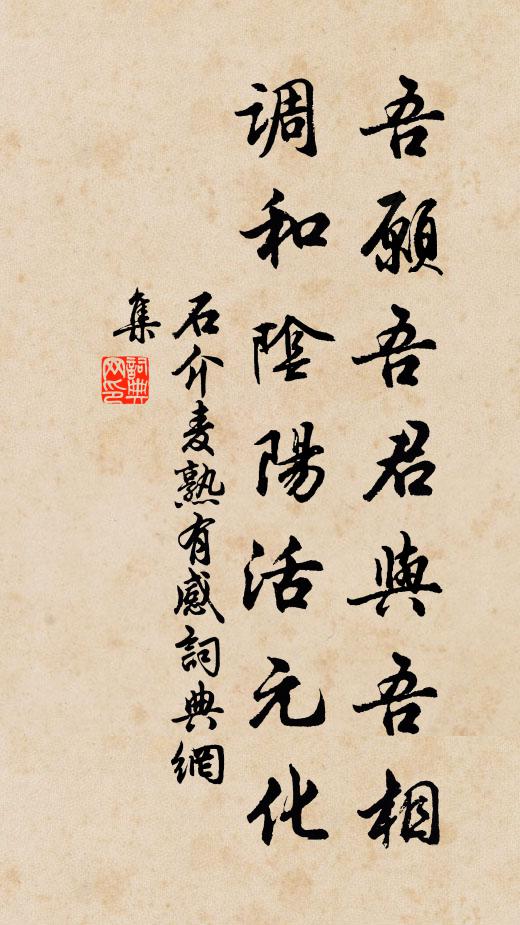 吾願吾君與吾相
調和陰陽活元化
石介麦熟有感詞典網
集
詞典
网印